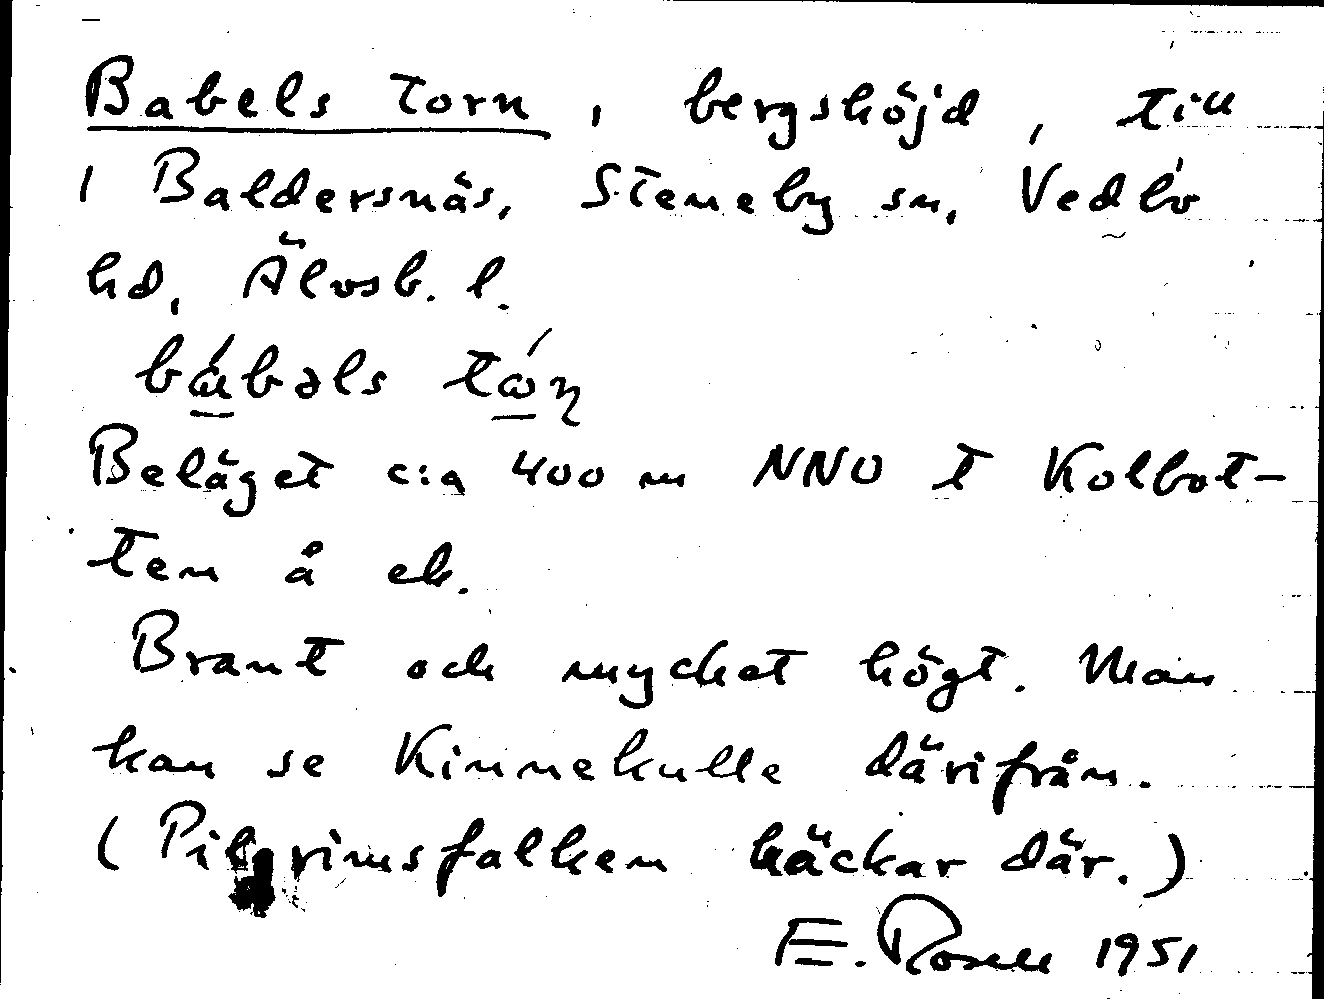 Babels torn, bergshöjd, till
1 Baldersnäs, Steneby sn, Vedbo
hd, Älvsb. l.
Beläget c:a 400 m NNO t Kolbot-
ten å ek.
Brant och mycket högt. Man
kan se Kinnekulle därifrån.
(Pilgrimsfalken häckar där.)
E. Rosell 1951